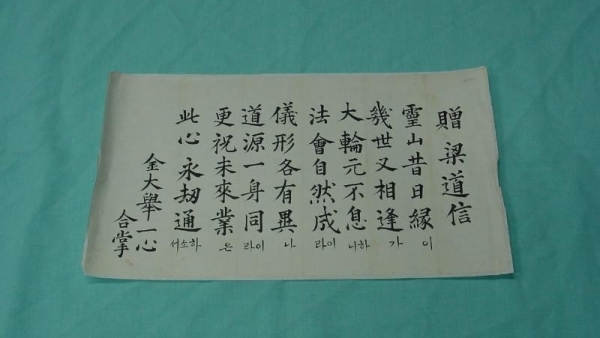 贈 梁道信
靈山昔日緣이
幾世又相逢가
大輪元不息하니
法會自然成이라
儀形各有異나
道源一身同이라
更祝未來業은
此心永刼通하소서
金大舉一心
合掌